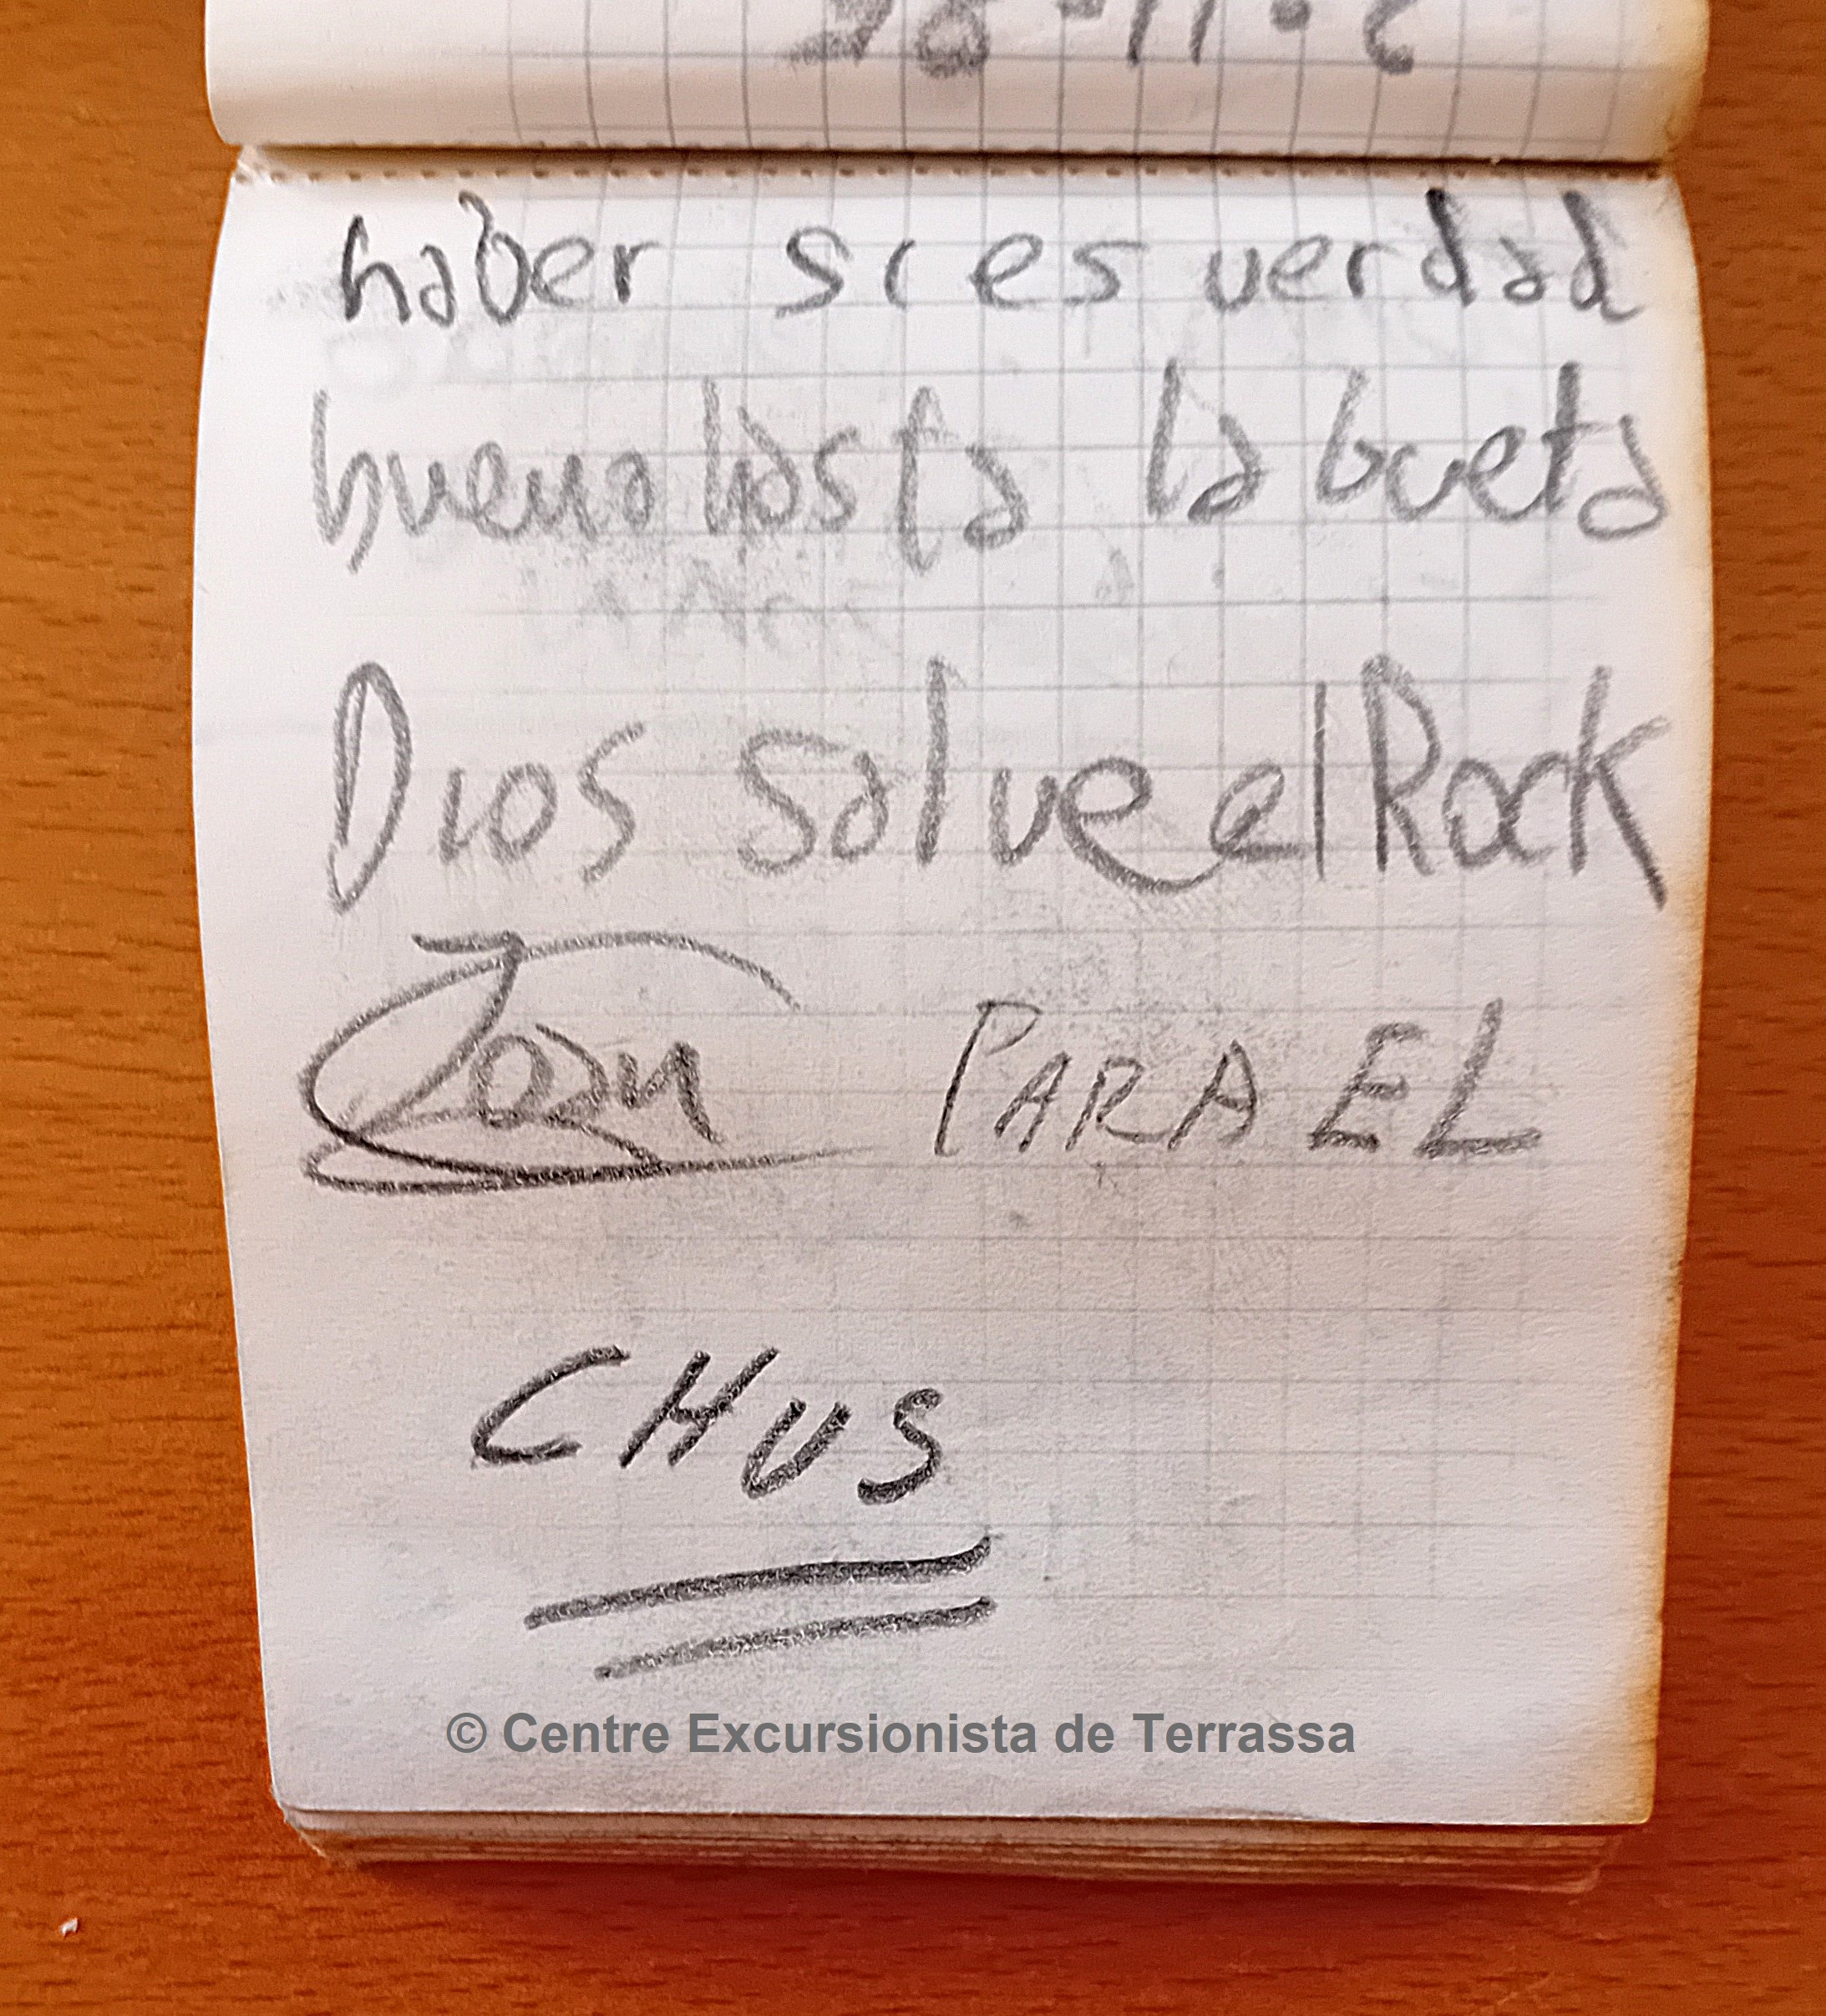 haber si es verdad
bueno hasta la bueta
Dios salve el Rock
PARA EL
CHUS
© Centre Excursionista de Terrassa